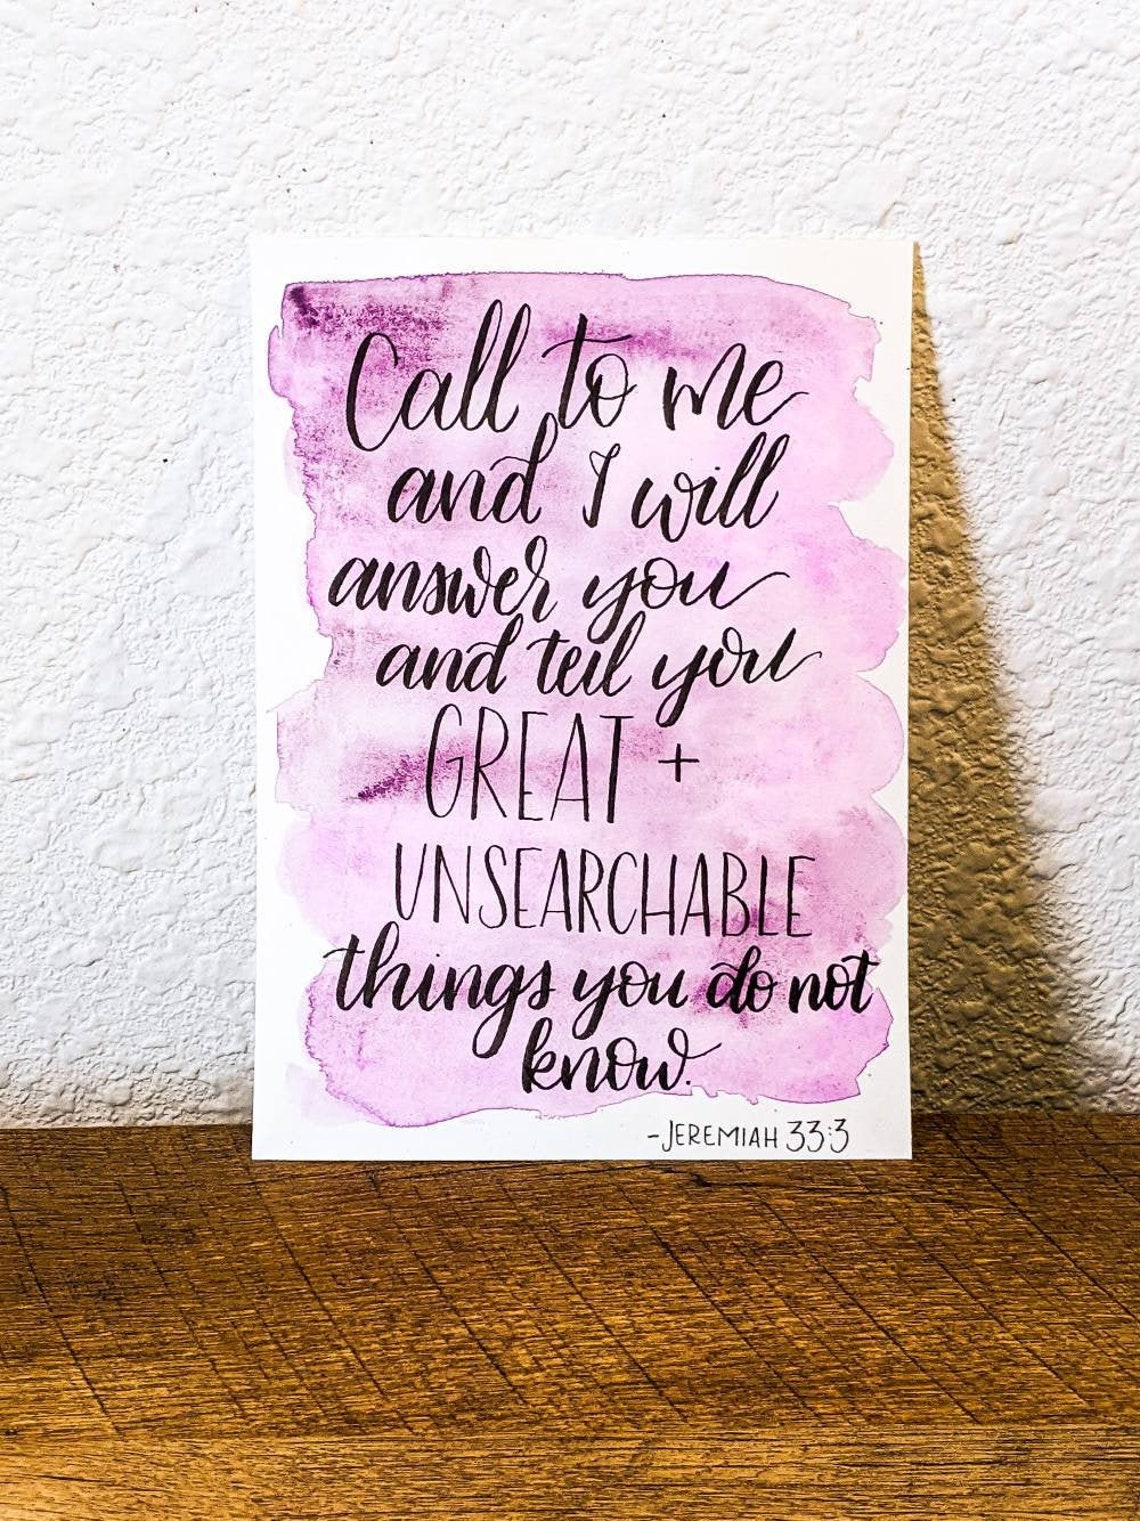 Call to me
and I will
answer you
and tell you
GREAT +
UNSEARCHABLE
things you do not
know.
-JEREMIAH 33:3